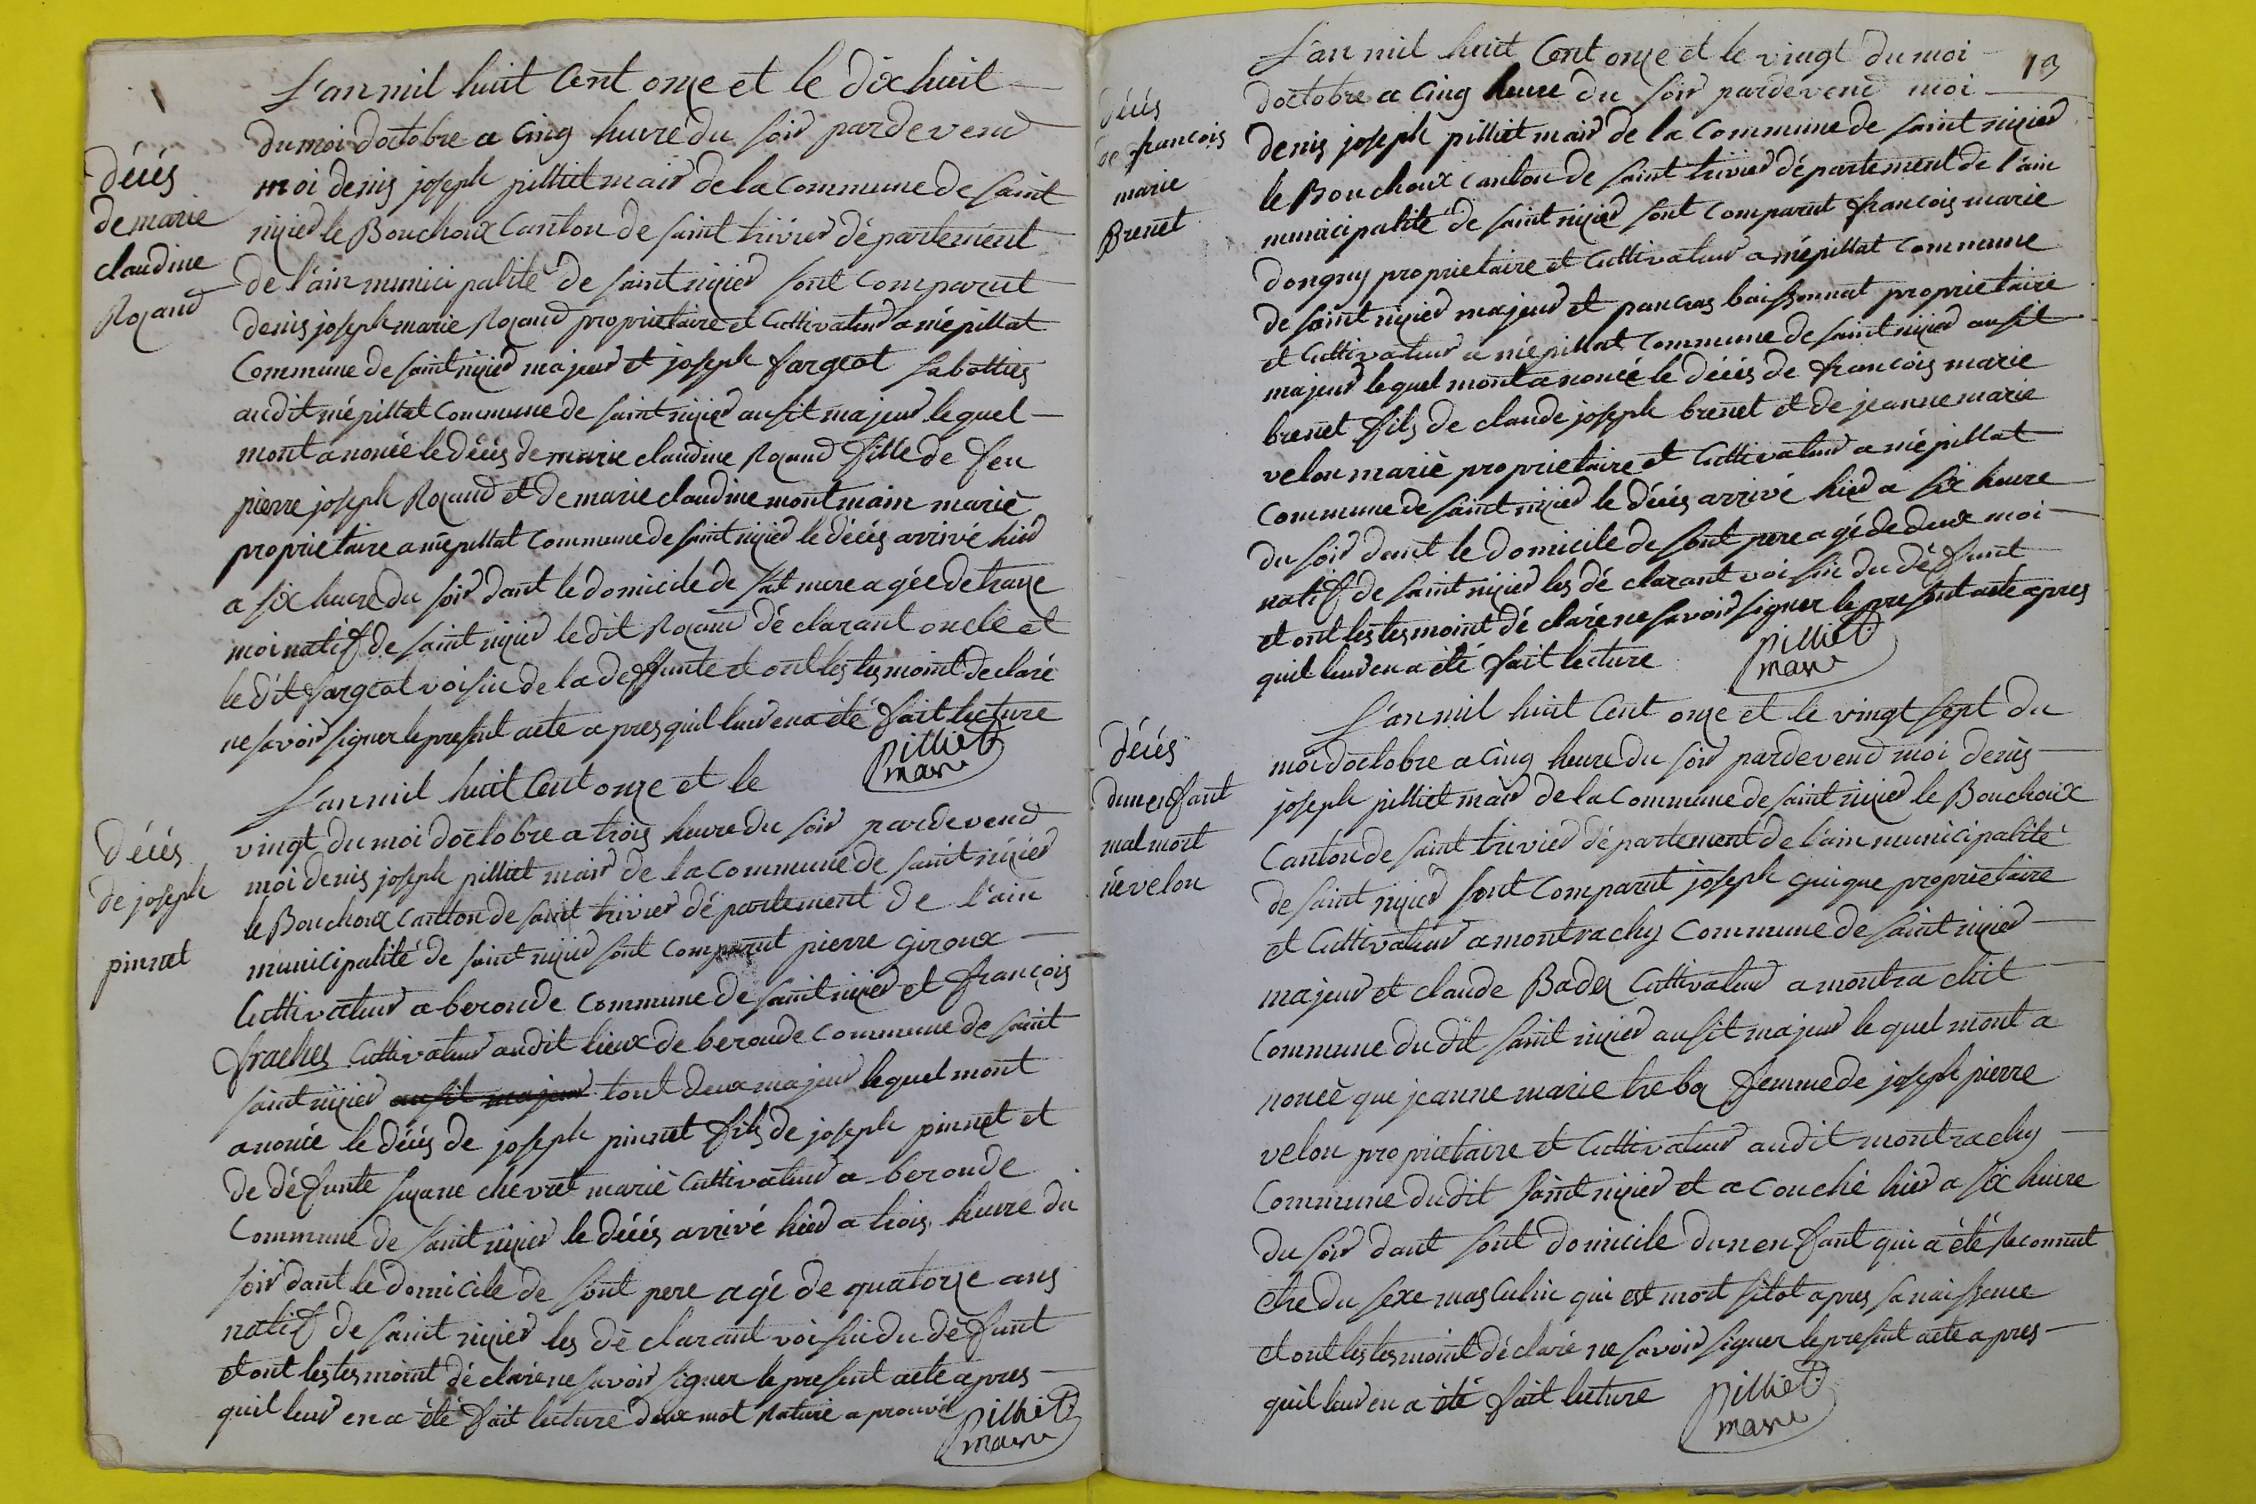 L'an mil huit Cent onze et le dix huit
du moi doctobre a cinq heure du soir pardevend
décés
de marie
claudine
Rozand
moi denis joseph pilliet mair de la Commune de saint
nizier le Bouchoux Canton de saint trivier département
de l'ain municipalité de saint nizier sont Comparut
denis joseph marie Rozand proprietaire et Cultivateur a mépillat
Commune de saint nizier majeur et joseph fargeot sabottier
audit mépillat Commune de saint nizier ausit majeur lequel
mont anoncé le décés de marie claudine Rozand fille de feu
pierre joseph Rozand et de marie claudine montmain marié
proprietaire a mépillat Commune de saint nizier le décés arrivé hier
a six heure du soir dant le domicile de sat mere agée de traize
moi natif de saint nizier ledit Rozand déclarant oncle et
le dit fargeot voisin de la deffunte et ont les tesmoint declaré
ne savoir signer le present acte apres quil leur en a été fait lecture
Pilliet
mare
L'an mil huit Cent onze et le
décés
de joseph
pinnet
vingt du moi doctobre a trois heure du soir pardevend
moi denis joseph pilliet mair de la Commune de saint nizier
le Bouchoux Canton de saint trivier département de l'ain
municipalité de saint nizier sont comparut pierre giroux
Cultivateur a beronde Commune de saint nizier et françois
fraches Cultivateur audit lieux de beronde Commune de saint
saint nizier ausit majeur tout deux majeur lequel mont
anoncé le décés de joseph pinnet fils de joseph pinnet et
de défunte suzane chevret marié Cultivateur a beronde
Commune de saint nizier le décés arrivé hier a trois heure du
soir dant le domicile de sont pere agé de quatorze ans
natif de saint nizier les déclarant voisin du défunt
et ont les tesmoint déclaré ne savoir signer le present acte apres
quil leur en a été fait lecture deux mot Rature aprouvé
Pilliet
mare
13
L'an mil huit Cent onze et le vingt du moi
décés
de francois
marie
Brenet
doctobre a cinq heure du soir pardevend moi
denis joseph pilliet mair de la Commune de saint nizier
le Bouchoux Canton de saint trivier département de l'ain
municipalité de saint nizier sont Comparut francois marie
dongny proprietaire et Cultivateur a mépillat Commune
de saint nizier majeur et pancras boissonnat proprietaire
et Cultivateur a mépillat Commune de saint nizier ausit
majeur lequel mont anoncé le décés de francois marie
brenet fils de claude joseph brenet et de jeanne marie
velon marié proprietaire et Cultivateur a mépillat
Commune de saint nizier le décés arrivé hier a six heure
du soir dant le domicile de sont pere agé de deux moi
natif de saint nizier les déclarant voisin du défunt
et ont les tesmoint déclaré ne savoir signer le present acte apres
quil leur en a été fait lecture
Pilliet
mare
L'an mil huit Cent onze et le vingt sept du
décés
dun enfant
mal mort
né velon
moi doctobre a cinq heure du soir pardevend moi denis
joseph pilliet mair de la Commune de saint nizier le Bouchoux
Canton de saint trivier département de l'ain municipalité
de saint nizier sont Comparut joseph guigue proprietaire
et Cultivateur a montrachy Commune de saint nizier
majeur et claude Badez Cultivateur a montra chit
Commune dudit saint nizier ausit majeur lequel mont a
noncé que jeanne marie treboz femme de joseph pierre
velon proprietaire et Cultivateur audit montrachy
Commune dudit saint nizier et acouché hier a six heure
du soir dant sont domicile dun enfant qui a été reconnut
etre du sexe masculin qui est mort sitot apres sa naissence
et ont les tesmoint déclaré ne savoir signer le present acte apres
quil leur en a été fait lecture
Pilliet
mare